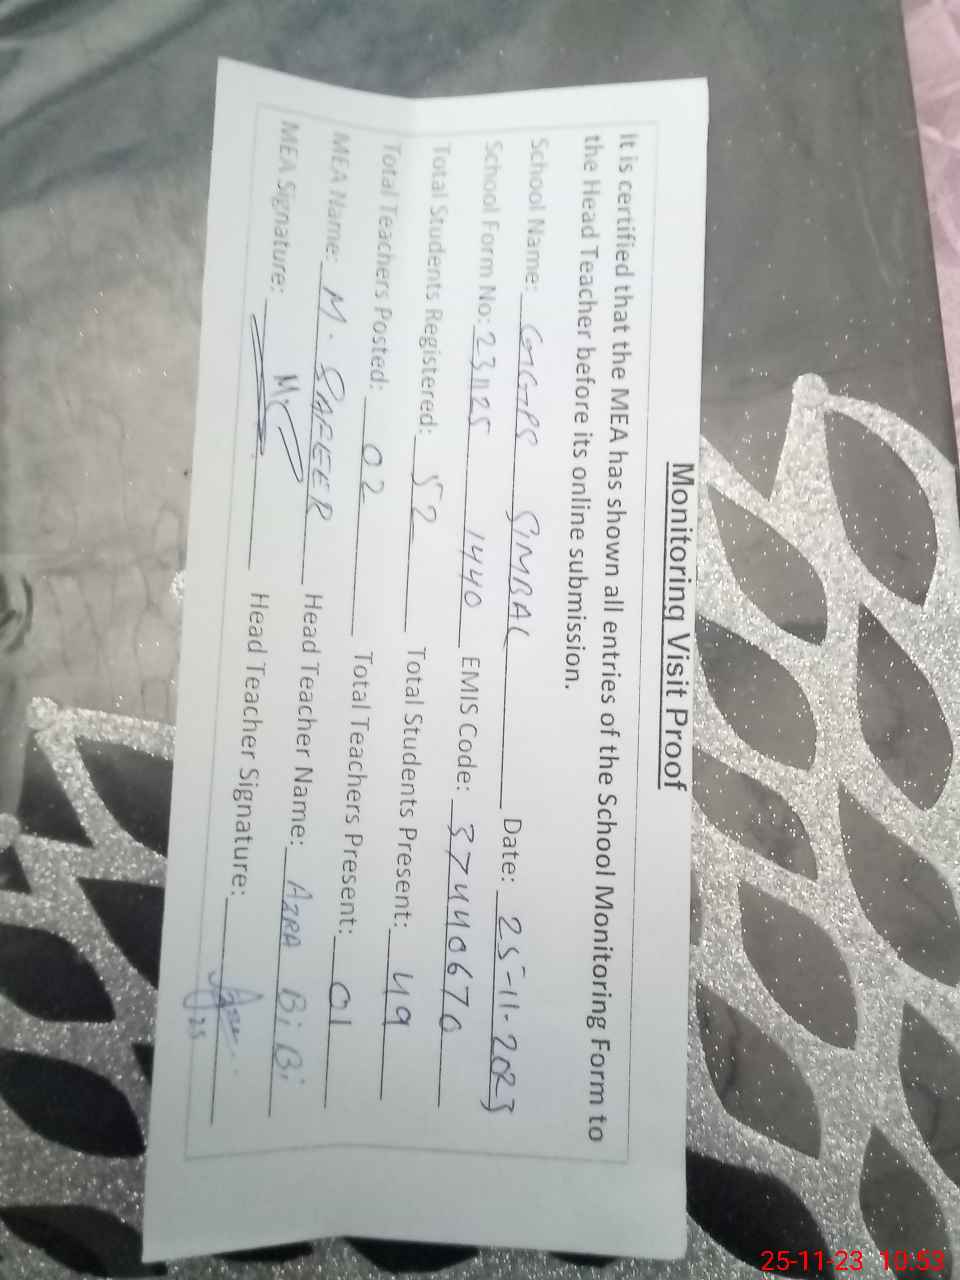 Monitoring Visit Proof
It is certified that the MEA has shown all entries of the School Monitoring Form to
the Head Teacher before its online submission.
School Name: GGPS SIMBAL Date: 25-11-2023
School Form No: 231125 1440 EMIS Code: 37440670
Total Students Registered: 52 Total Students Present: 49
Total Teachers Posted: 02 Total Teachers Present: 01
MEA Name: M. SAFEER Head Teacher Name: AZRA BiBi
MEA Signature: Head Teacher Signature:
25-11-23 10:53